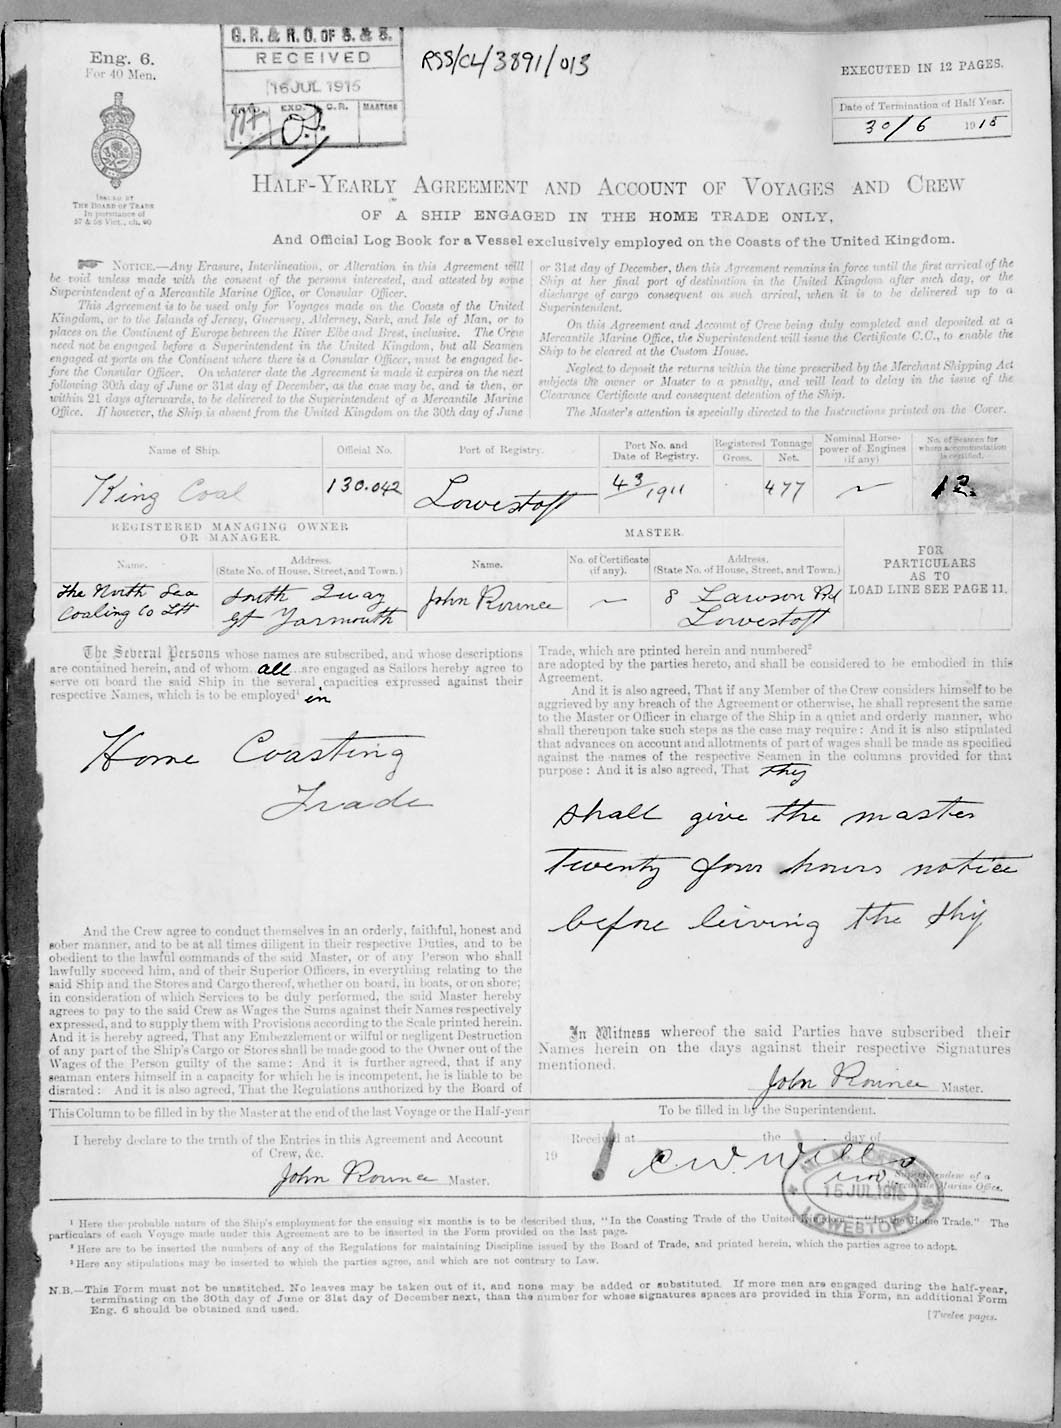 Eng. 6.
For 40 Men.
G. R. & R. O. OF S. & S.
RECEIVED
16 JUL 1915
EXD. C.R. MASTERS
RSS/CL/3891/013
EXECUTED IN 12 PAGES.
Date of Termination of Half Year.
30/6 1915
ISSUED BY
THE BOARD OF TRADE
In pursuance of
57 & 58 Vict., ch. 60
HALF-YEARLY AGREEMENT AND ACCOUNT OF VOYAGES AND CREW
OF A SHIP ENGAGED IN THE HOME TRADE ONLY,
And Official Log Book for a Vessel exclusively employed on the Coasts of the United Kingdom.
NOTICE.—Any Erasure, Interlineation, or Alteration in this Agreement will
be void unless made with the consent of the persons interested, and attested by some
Superintendent of a Mercantile Marine Office, or Consular Officer.
This Agreement is to be used only for Voyages made on the Coasts of the United
Kingdom, or to the Islands of Jersey, Guernsey, Alderney, Sark, and Isle of Man, or to
places on the Continent of Europe between the River Elbe and Brest, inclusive. The Crew
need not be engaged before a Superintendent in the United Kingdom, but all Seamen
engaged at ports on the Continent where there is a Consular Officer, must be engaged be-
fore the Consular Officer. On whatever date the Agreement is made it expires on the next
following 30th day of June or 31st day of December, as the case may be, and is then, or
within 21 days afterwards, to be delivered to the Superintendent of a Mercantile Marine
Office. If however, the Ship is absent from the United Kingdom on the 30th day of June
or 31st day of December, then this Agreement remains in force until the first arrival of the
Ship at her final port of destination in the United Kingdom after such day, or the
discharge of cargo consequent on such arrival, when it is to be delivered up to a
Superintendent.
On this Agreement and Account of Crew being duly completed and deposited at a
Mercantile Marine Office, the Superintendent will issue the Certificate C.C., to enable the
Ship to be cleared at the Custom House.
Neglect to deposit the returns within the time prescribed by the Merchant Shipping Act
subjects the owner or Master to a penalty, and will lead to delay in the issue of the
Clearance Certificate and consequent detention of the Ship.
The Master's attention is specially directed to the Instructions printed on the Cover.
Name of Ship. Official No. Port of Registry. Port No. and Date of Registry. Registered Tonnage Gross. Net. Nominal Horse-power of Engines (if any) No. of Seamen for whom accommodation is certified.
King Coal 130.042 Lowestoft 43/1911 477 ~ 12
REGISTERED MANAGING OWNER
OR MANAGER.
MASTER.
Name. Address. (State No. of House, Street, and Town.) Name. No. of Certificate (if any). Address. (State No. of House, Street, and Town.)
The North Sea
Coaling Co Ltd
South Quay
Gt Yarmouth
John Rounce ~
8 Lawson Rd
Lowestoft
FOR
PARTICULARS
AS TO
LOAD LINE SEE PAGE 11.
The Several Persons whose names are subscribed, and whose descriptions
are contained herein, and of whom all are engaged as Sailors hereby agree to
serve on board the said Ship in the several capacities expressed against their
respective Names, which is to be employed¹ in
Home Coasting
Trade
And the Crew agree to conduct themselves in an orderly, faithful, honest and
sober manner, and to be at all times diligent in their respective Duties, and to be
obedient to the lawful commands of the said Master, or of any Person who shall
lawfully succeed him, and of their Superior Officers, in everything relating to the
said Ship and the Stores and Cargo thereof, whether on board, in boats, or on shore;
in consideration of which Services to be duly performed, the said Master hereby
agrees to pay to the said Crew as Wages the Sums against their Names respectively
expressed, and to supply them with Provisions according to the Scale printed herein.
And it is hereby agreed, That any Embezzlement or wilful or negligent Destruction
of any part of the Ship's Cargo or Stores shall be made good to the Owner out of the
Wages of the Person guilty of the same: And it is further agreed, that if any
seaman enters himself in a capacity for which he is incompetent, he is liable to be
disrated: And it is also agreed, That the Regulations authorized by the Board of
Trade, which are printed herein and numbered²
are adopted by the parties hereto, and shall be considered to be embodied in this
Agreement.
And it is also agreed, That if any Member of the Crew considers himself to be
aggrieved by any breach of the Agreement or otherwise, he shall represent the same
to the Master or Officer in charge of the Ship in a quiet and orderly manner, who
shall thereupon take such steps as the case may require: And it is also stipulated
that advances on account and allotments of part of wages shall be made as specified
against the names of the respective Seamen in the columns provided for that
purpose: And it is also agreed, That they
shall give the master
twenty four hours notice
before leiving the ship
In Witness whereof the said Parties have subscribed their
Names herein on the days against their respective Signatures
mentioned.
John Rounce Master.
This Column to be filled in by the Master at the end of the last Voyage or the Half-year
To be filled in by the Superintendent.
I hereby declare to the truth of the Entries in this Agreement and Account
of Crew, &c.
John Rounce Master.
Received at the day of
19 C. W. Wells
Superintendent of a
Mercantile Marine Office.
M. M. OFFICE
15 JUL 1915
LOWESTOFT
¹ Here the probable nature of the Ship's employment for the ensuing six months is to be described thus, "In the Coasting Trade of the United Kingdom," "In the Home Trade." The
particulars of each Voyage made under this Agreement are to be inserted in the Form provided on the last page.
² Here are to be inserted the numbers of any of the Regulations for maintaining Discipline issued by the Board of Trade, and printed herein, which the parties agree to adopt.
³ Here any stipulations may be inserted to which the parties agree, and which are not contrary to Law.
N.B.—This Form must not be unstitched. No leaves may be taken out of it, and none may be added or substituted. If more men are engaged during the half-year,
terminating on the 30th day of June or 31st day of December next, than the number for whose signatures spaces are provided in this Form, an additional Form
Eng. 6 should be obtained and used.
[Twelve pages.